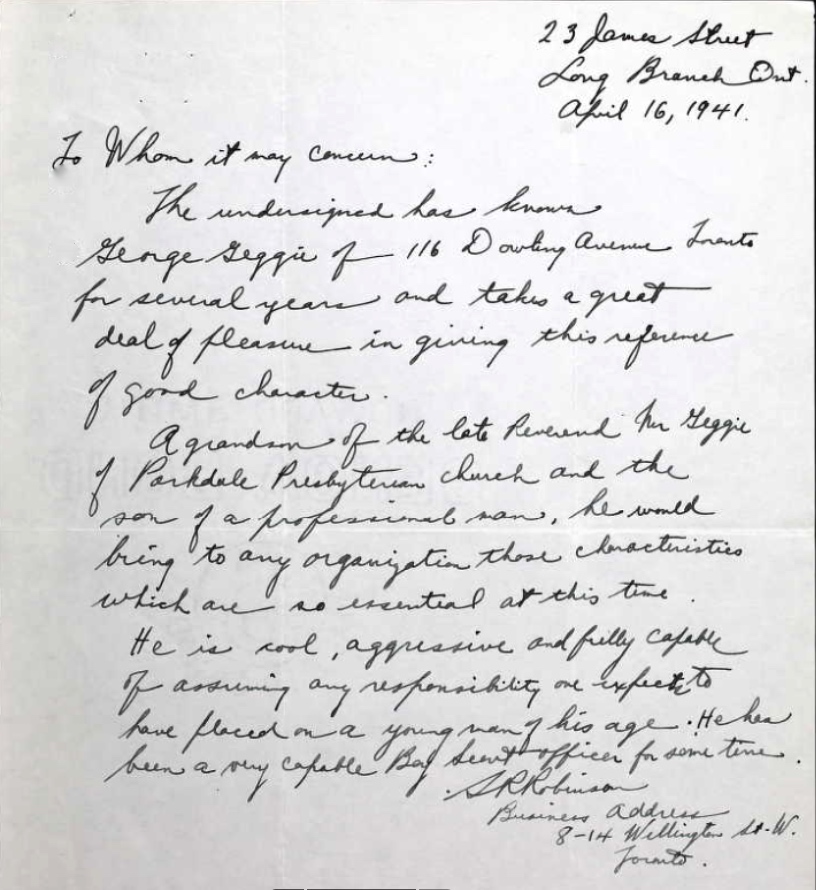 23 James Street
Long Branch Ont.
April 16, 1941.
To Whom it may concern:
The undersigned has known
George Geggie of 116 Dowling Avenue Toronto
for several years and takes a great
deal of pleasure in giving this reference
of good character.
A grandson of the late Reverend Mr Geggie
of Parkdale Presbyterian church and the
son of a professional man, he would
bring to any organization those characteristics
which are so essential at this time.
He is cool, aggressive and fully capable
of assuming any responsibility one expects to
have placed on a young man of his age. He has
been a very capable Boy Scout officer for some time.
S R Robinson
Business Address
8-14 Wellington St. W.
Toronto.